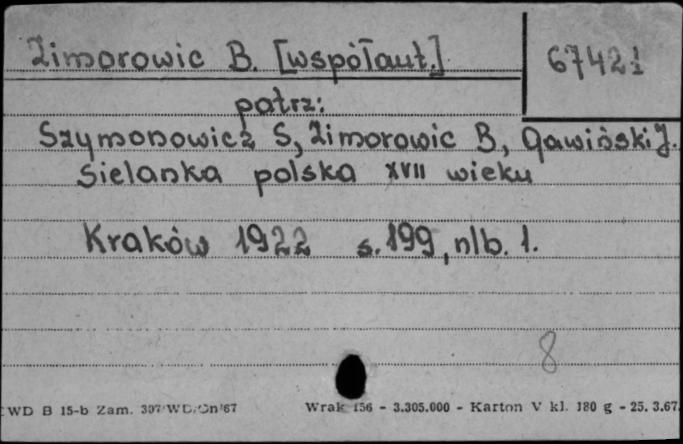 Zimorowic B. [współaut.]
67421
patrz:
Szymonowicz S, Zimorowic B, Gawiński J.
Sielanka polska XVII wieku
Kraków 1922 s. 199, nlb. 1.
8
WD B 15-b Zam. 307/WD/Gn/67 Wrak 156 - 3.305.000 - Karton V kl. 180 g - 25. 3.67.